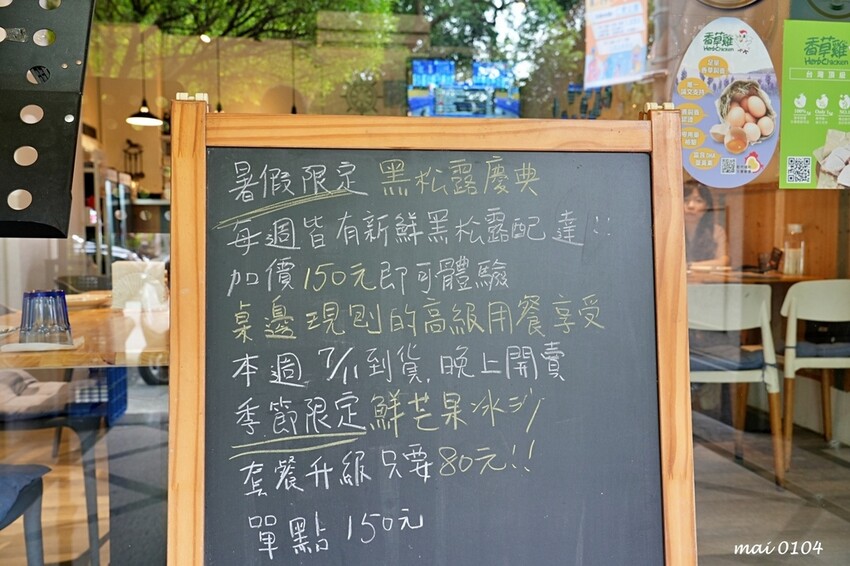 暑假限定 黑松露慶典
每週皆有新鮮黑松露配達!!
加價150元即可體驗
桌邊現刨的高級用餐享受
本週 7/11到貨,晚上開賣
季節限定鮮芒果冰沙
套餐升級只要80元!!
單點 150元
香草雞
HerbChicken
香草雞
HerbChicken
台灣頂級
mai 0104